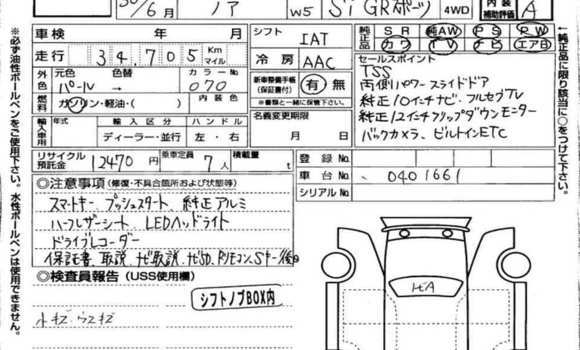 30/6月 ノア W5 Si GRスポーツ 4WD 内装 補助評価 A
車検 年 月 シフト IAT 純正品 SR 純AW PS PW
カワ TV ナビ エアB
走行 34,705 Km マイル 冷房 AAC
セールスポイント
TSS
両側パワースライドドア
純正10インチナビ・フルセグTV
純正12インチフリップダウンモニター
バックカメラ、ビルトインETC
外色 元色 色替 カラーNo
パール → 070
新車整備手帳(保証書付) 有・無
燃料 ガソリン・軽油・( ) 内装色
名義変更期限
月 日
輸入車用 年式 輸入区分 ハンドル
ディーラー・並行 左・右
リサイクル預託金 12470円 乗車定員 7人 積載量 t
登録No.
車台No. 0401661
シリアルNo.
◎注意事項(修復・不具合箇所および状態等)
スマートキー プッシュスタート 純正アルミ
ハーフレザーシート LEDヘッドライト
ドライブレコーダー
保証書、取説、ナビ取説、ナビSD、リモコン、Sキー
◎検査員報告(USS使用欄)
シフトノブBOX内
小キズ
※必ず油性ボールペンをご使用下さい。水性ボールペンは使用できません。
純正品に限り該当に○をつけて下さい。